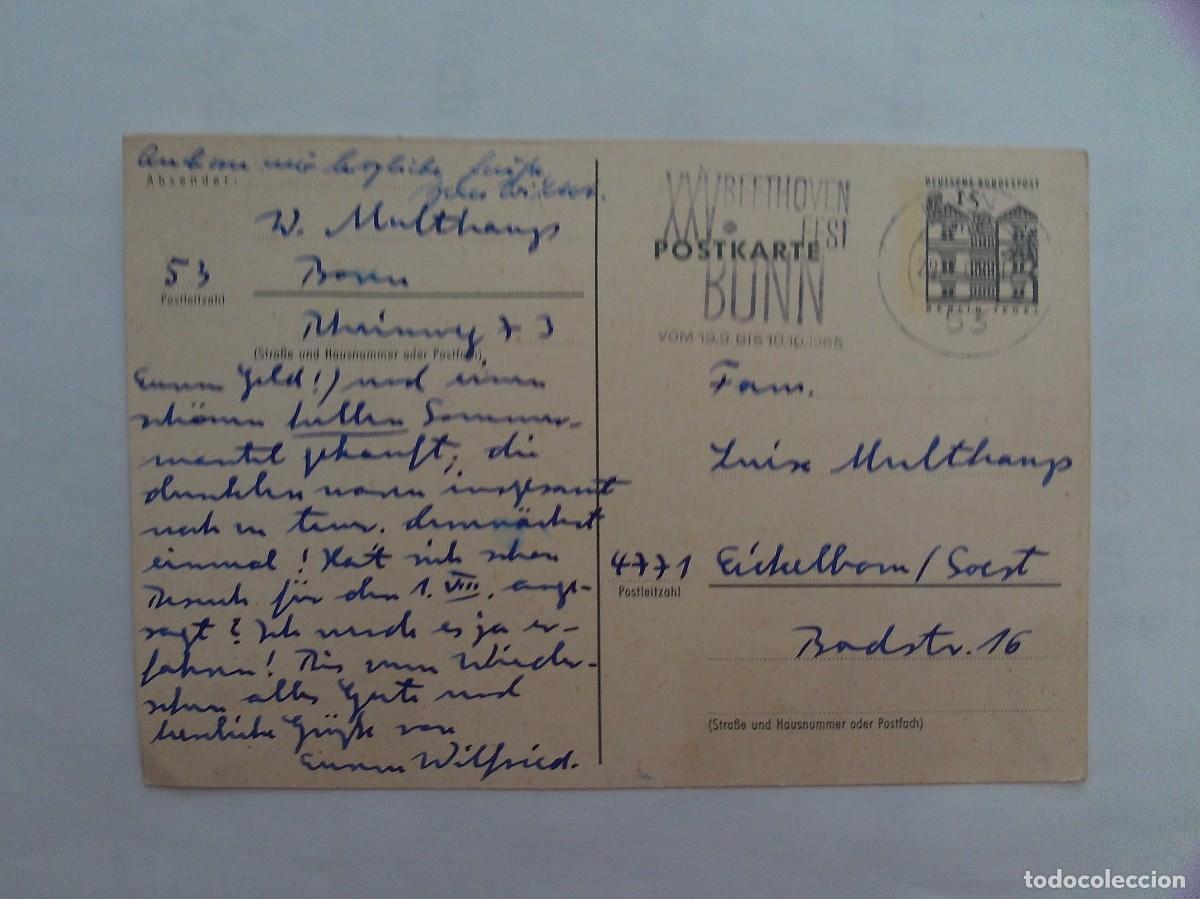 herzliche Grüße
Absender:
W. Multhaup
53
Bonn
Postleitzahl
Rheinweg 73
(Straße und Hausnummer oder Postfach)
Eurem Geld!) und einen
schönen hellen Sommer-
mantel gekauft, die
dunklen waren insgesamt
noch zu teuer. demnächst
einmal! Hat sich schon
Besuch für den 1. VIII. ange-
sagt? Ich werde es ja er-
fahren! Bis zum Wieder-
sehen alles Gute und
herzliche Grüße von
Eurem Wilfried.
XXV. BEETHOVEN
FEST
BONN
VOM 19.9. BIS 10.10.1965
POSTKARTE
DEUTSCHE BUNDESPOST
15
BERLIN TEGEL
53
Fam.
Luise Multhaup
4771
Eickelborn/Soest
Postleitzahl
Badstr. 16
(Straße und Hausnummer oder Postfach)
todocoleccion